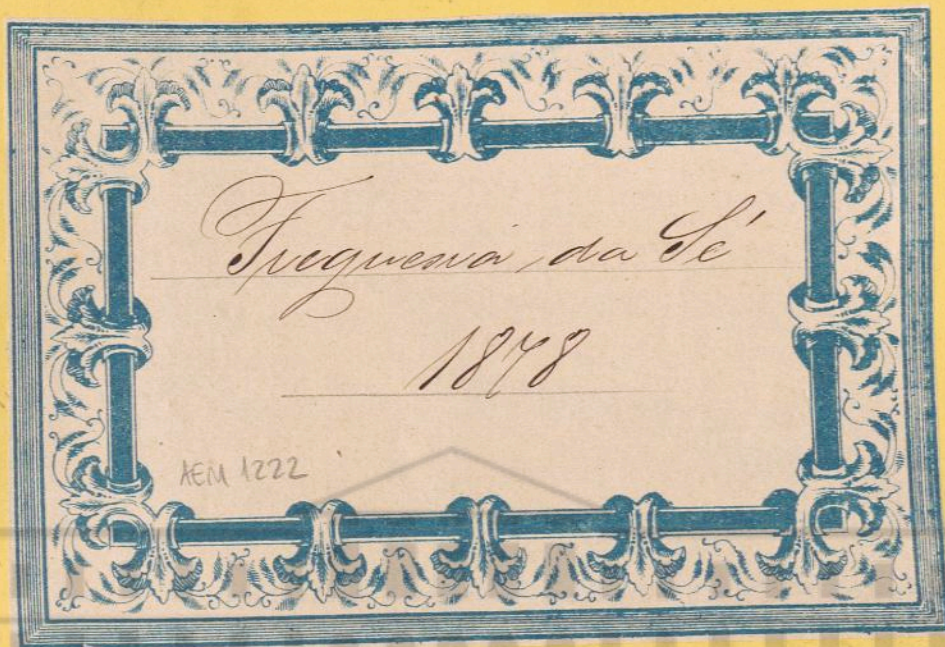 Freguesia da Sé
1878
AEM 1222